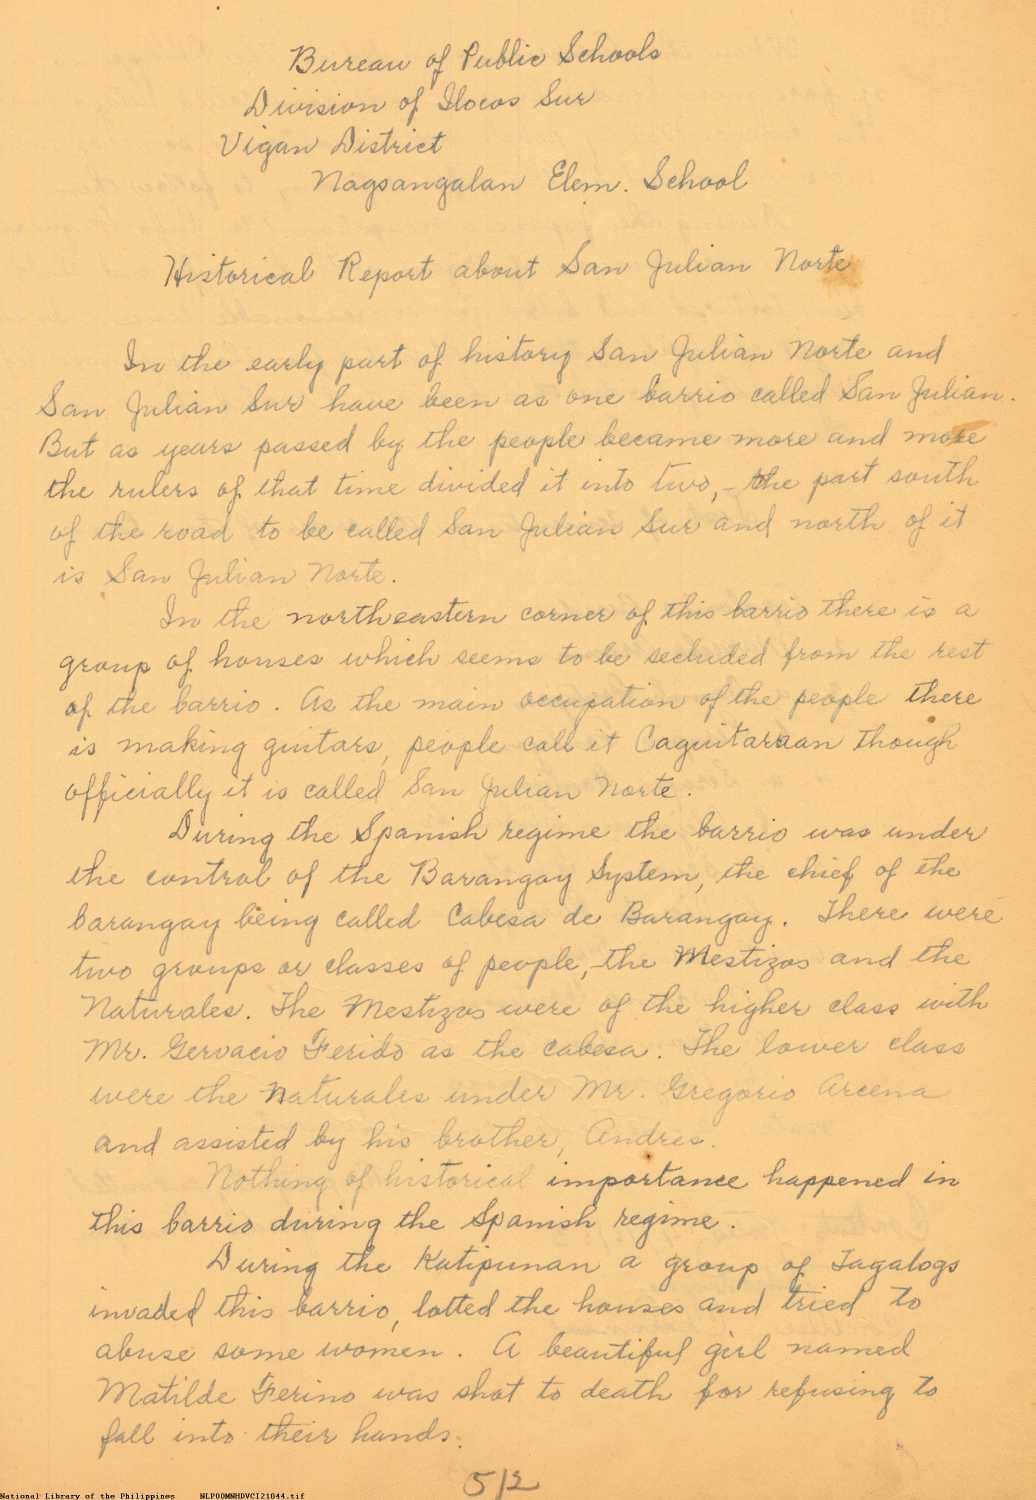 Bureau of Public Schools
Division of Ilocos Sur
Vigan District
Nagsangalan Elem. School
Historical Report about San Julian Norte
In the early part of history San Julian Norte and
San Julian Sur have been as one barrio called San Julian.
But as years passed by the people became more and more
the rulers of that time divided it into two, - the part south
of the road to be called San Julian Sur and north of it
is San Julian Norte.
In the northeastern corner of this barrio there is a
group of houses which seems to be secluded from the rest
of the barrio. As the main occupation of the people there
is making guitars, people call it Caguitaraan though
officially it is called San Julian Norte.
During the Spanish regime the barrio was under
the control of the Barangay System, the chief of the
barangay being called Cabesa de Barangay. There were
two groups or classes of people, the Mestizos and the
Naturales. The Mestizos were of the higher class with
Mr. Gervacio Ferido as the cabesa. The lower class
were the Naturales under Mr. Gregorio Arcena
and assisted by his brother, Andres.
Nothing of historical importance happened in
this barrio during the Spanish regime.
During the Katipunan a group of Tagalogs
invaded this barrio, lotted the houses and tried to
abuse some women. A beautiful girl named
Matilde Ferino was shot to death for refusing to
fall into their hands.
512
National Library of the Philippines NLPOOMNHDVCI21044.tif